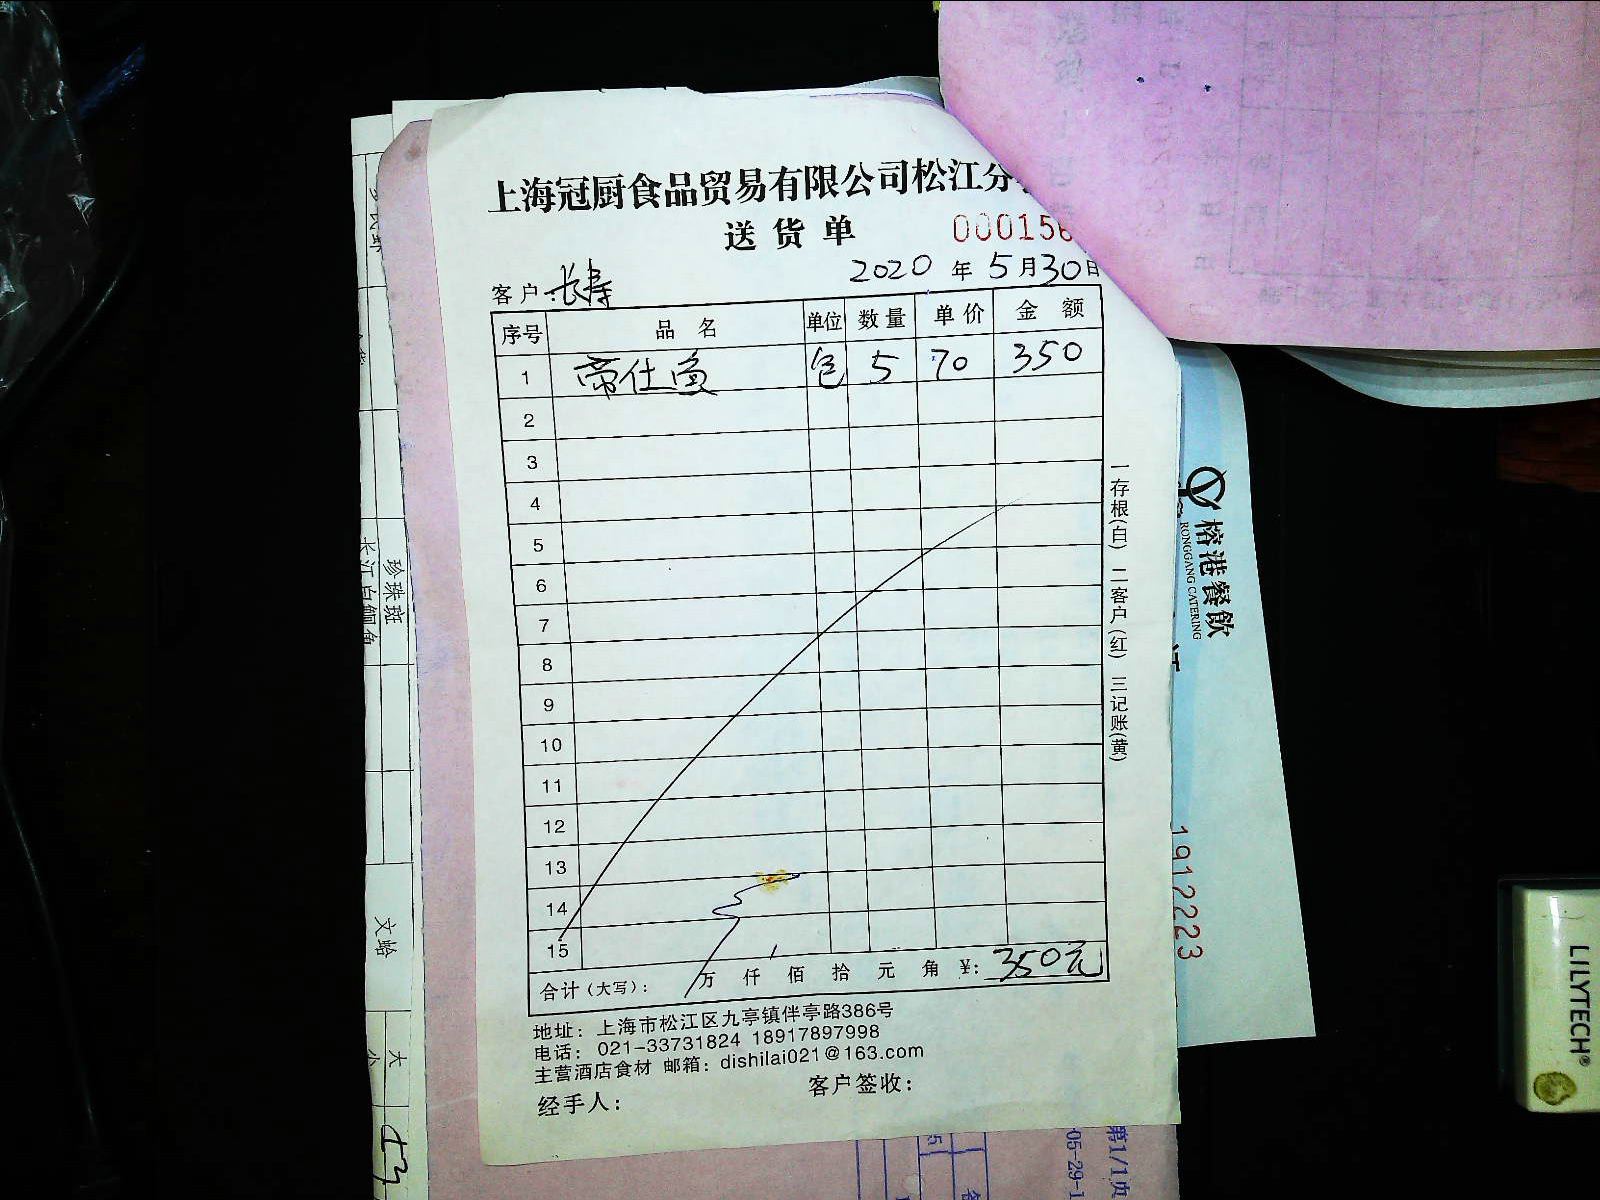 上海冠厨食品贸易有限公司松江分
送货单
000156
2020 年 5 月 30 日
客户: 长寿
序号 品名 单位 数量 单价 金额
1 帝仕鱼 包 5 70 350
2
3
4
5
6
7
8
9
10
11
12
13
14
15
合计(大写): 万 仟 佰 拾 元 角 ¥: 350元
地址: 上海市松江区九亭镇伴亭路386号
电话: 021-33731824 18917897998
主营酒店食材 邮箱: dishilai021@163.com
客户签收:
经手人:
一存根(白) 二客户(红) 三记账(黄)
榕港餐飲
RONGGANG CATERING
1912223
LILYTECH®
珍珠斑
文蛤
大
第1/1页
05-29-1